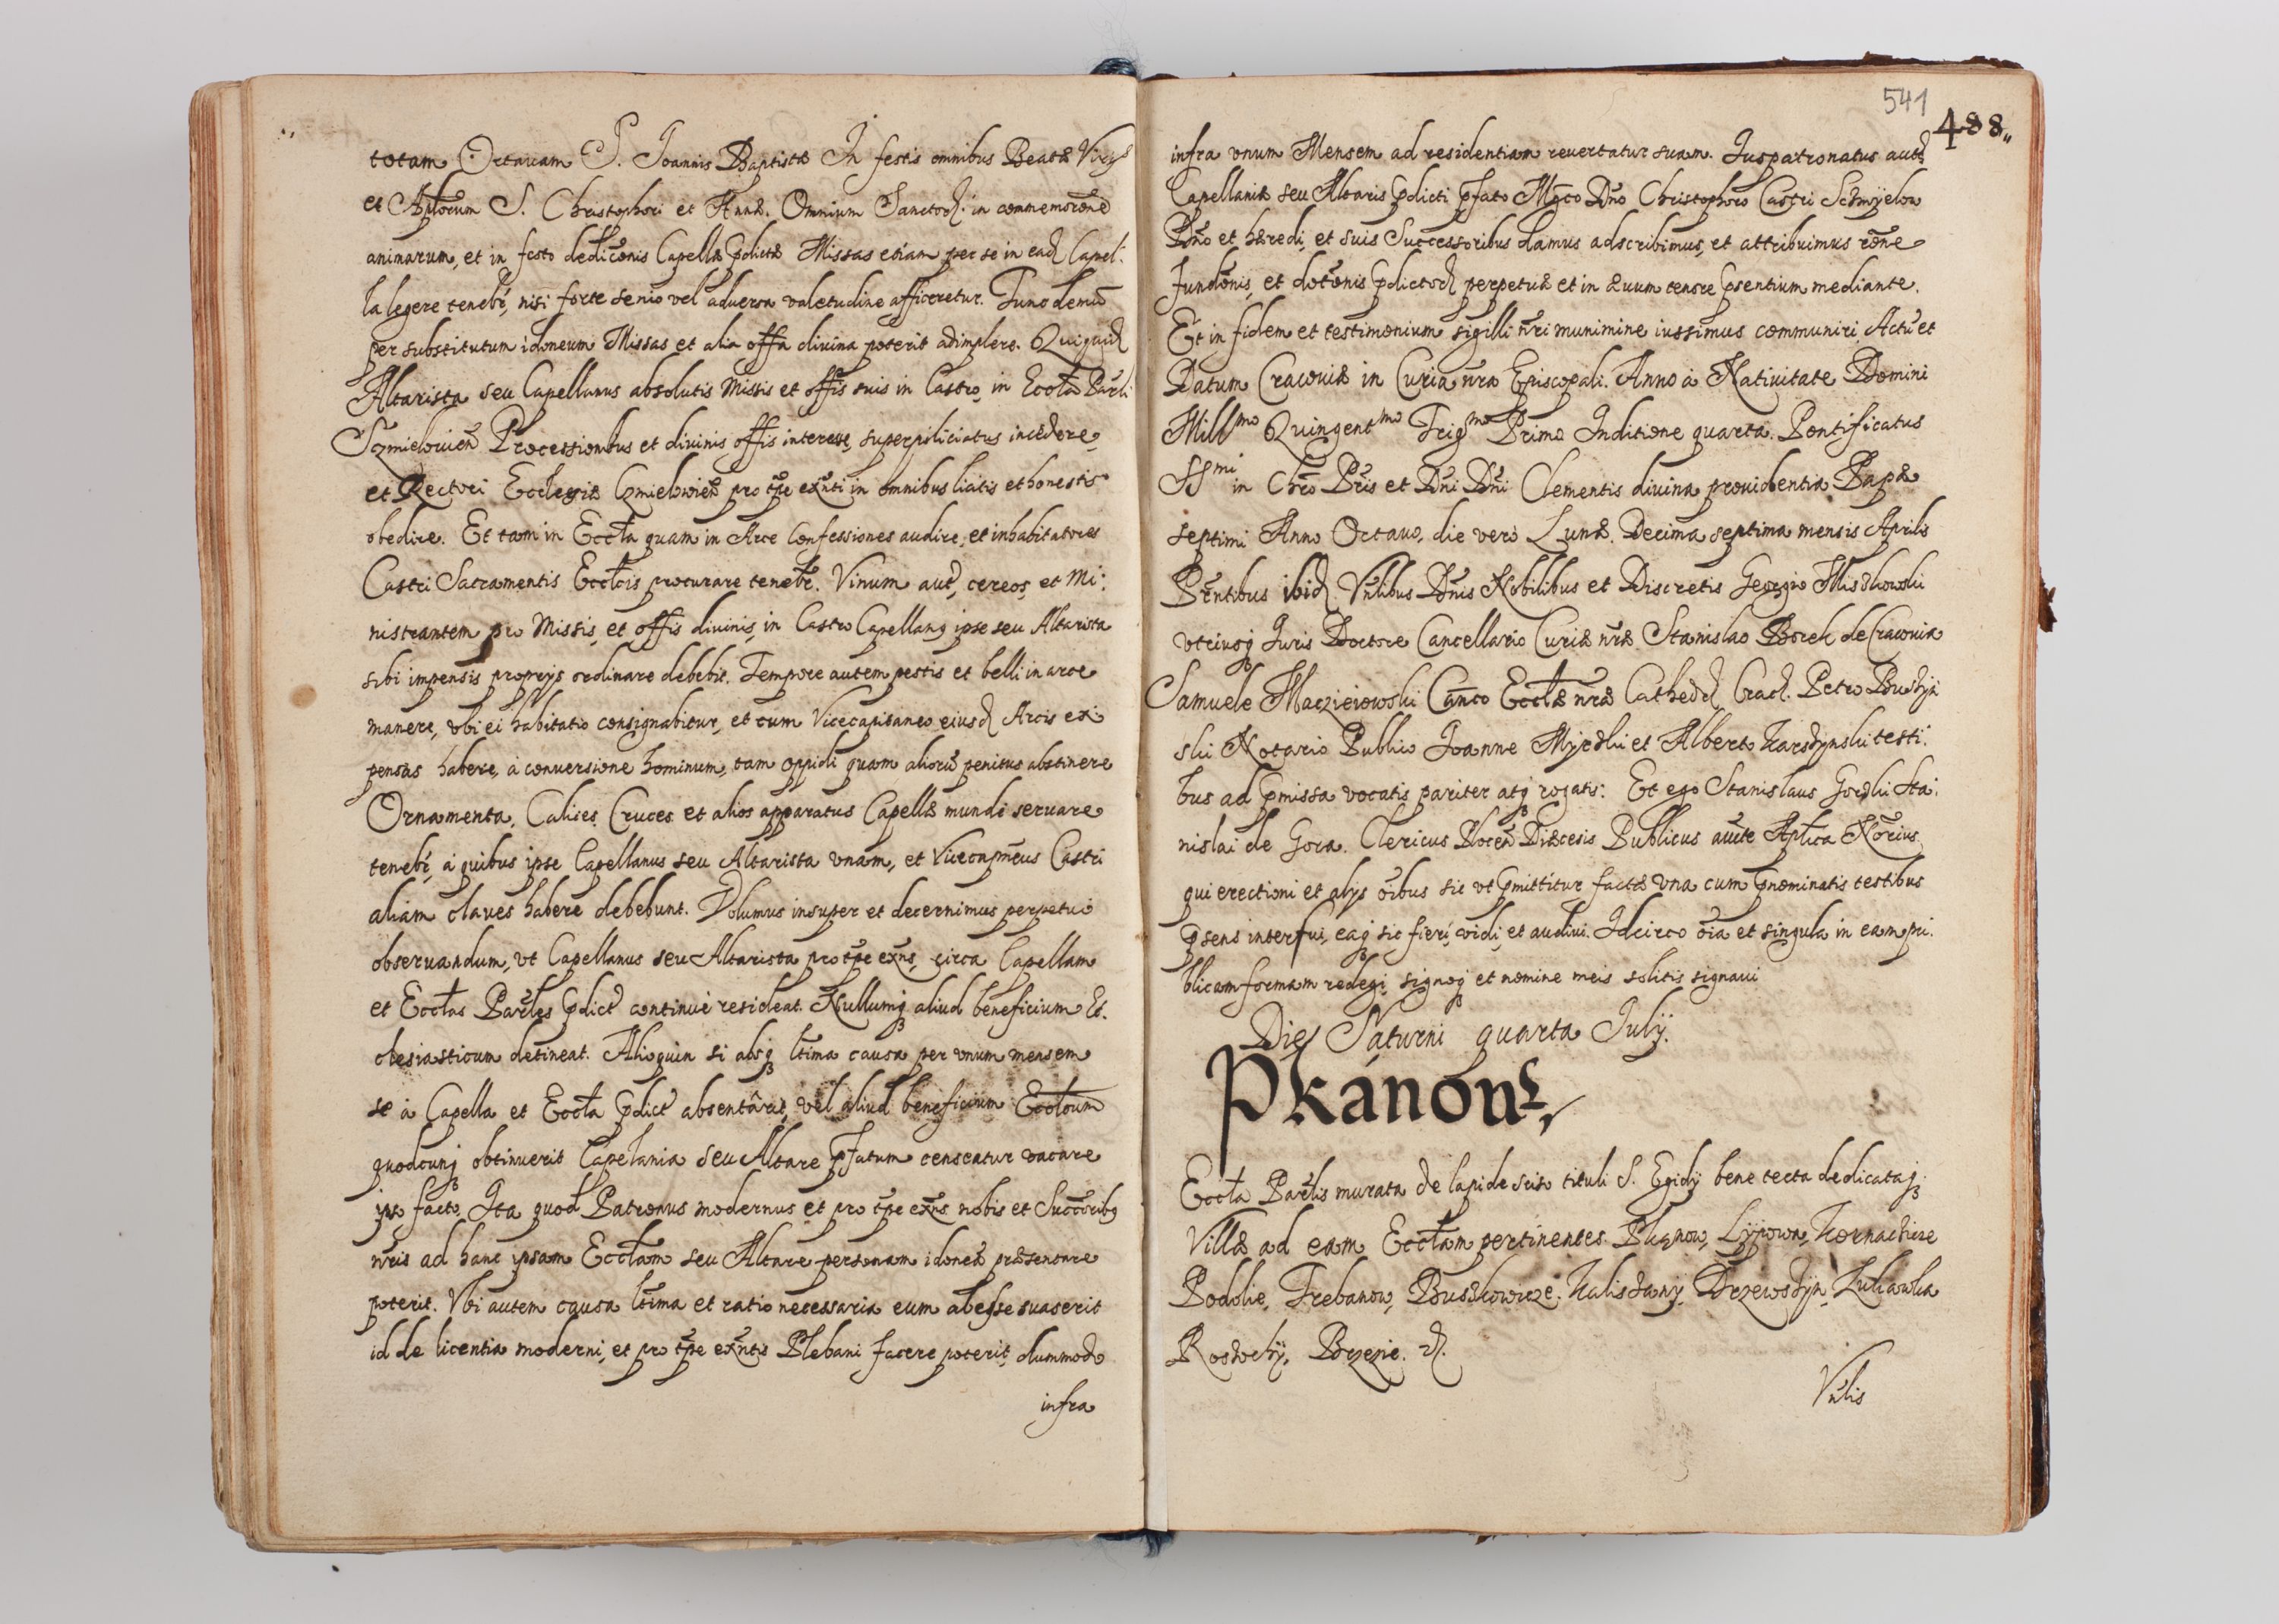 totam Octauam S. Joannis Baptistæ In festis omnibus Beatæ Virgs
et Aplorum S. Christophori et Annæ. Omnium Sanctoꝝ. in commemoroñe
animarum, et in festo dedicōnis Capellæ p̱dictæ Missas etiam per se in eaꝺ Capel:
la legere tenebr̄, nisi forte senio vel aduersa valetudine afficeretur. Tunc demū
per substitutum idoneum Missas et alia offa diuina poterit adimplere. Quiquiꝺ
Altarista seu Capellanus absolutis Missis et offis suis in Castro, in Eccła Parli
Szmielouien̄ Processionibus et diuinis offis interesse, superpiliciatus incedere,
et Rectori Ecclesiæ Czmielowien̄ pro tp̄e exn̄ti in omnibus licitis et honestis
obedire. Et tam in Eccła quam in Arce Confessiones audire, et inhabitatores
Castri Sacramentis Eccłcis procurare tenebr̄. Vinum aut̄, cereos, et Mi:
nistrantem pro Missis, et offis diuinis, in Castro Capellanꝯ ipse seu Altarista
sibi impensis proprijs ordinare debebit. Tempore autem pestis et belli in arce
manere, vbi ei habitatio consignabitur, et cum Vicecapitaneo eiusꝺ Arcis ex:
pensas habere, à conuersione hominum, tam oppidi quam aliorū penitus abstinere
Ornamenta, Calices, Cruces et alios apparatus Capellæ mundè seruare
tenebr̄, à quibus ipse Capellanus seu Altarista vnam, et Vicecapn̄eus Castri
aliam claues habere debebunt. Volumus insuper et decernimus perpetuò
obseruandum, vt Capellanus seu Altarista pro tp̄e exn̄s, circa Capellam
et Eccłas Parles p̱dict̄ continuè resideat. Nullumqꝫ aliud beneficium Ec.
clesiasticum detineat. Alioquin si absqꝫ ltima causa per vnum mensem
se à Capella et Eccła p̱dict̄ absentârit, vel aliud beneficium Eccłcum
quodcunqꝫ obtinuerit Capelania seu Altare p̱fatum censeatur vacare
ipso facto. Ita quod Patronus modernus et pro tp̄e exn̄s nobis et Succoribꝯ
nr̄is ad hanc ipsam Eccłam seu Altare personam idoneā præsentare
poterit. Vbi autem causa ltima et ratio necessaria eum abesse suaserit
id de licentia moderni, et pro tp̄e exn̄tis Plebani facere poterit, dummodo
infra
541
488,,
infra vnum Mensem ad residentiam reuertatur suam. Juspatronatus aut̄
Capellaniæ seu Altaris p̱dicti p̱fato Mgco Dn̄o Christophoro Castri Schmyelow
Dn̄o et hæredi, et suis Successoribus damus adscribimus, et attribuimus rōne
fundōnis, et dotōnis p̱dictoꝝ perpetuæ et in æuum tenore p̱sentium mediante.
Et in fidem et testimonium sigilli nr̄i munimine iussimus communiri. Actū et
Datum Cracouiæ in Curia nr̄a Episcopali. Anno à Natiuitate Domini
Millmo Quingentmo Trigmo Primo Inditione quarta. Pontificatus
SSmi in Chr̄o Pr̄is et Dn̄i Dn̄i Clementis diuina prouidentia Papæ
septimi Anno Octauo, die verò Lunæ. Decima septima mensis Aprilis
Pr̄entibus ibiꝺ Vn̄libus Dn̄is Nobilibus et Discretis Georgio Miszkowski
vtriusqꝫ Juris Doctore Cancellario Curiæ nr̄æ Stanislao Borek de Cracouia
Samuele Maczieiowski Can̄co Eccłæ nr̄æ Catheꝺ Crac̄. Petro
ski Notario Publico Joanne et Alberto testi:
bus ad p̱missa vocatis pariter atqꝫ rogatis. Et ego Stanislaus Gorski Sta:
nislai de Gora. Clericus Plocen̄ Diæcesis Publicus aucte Aplica Nōrius
qui erectioni et alijs oībus sic vt p̱mittitur factæ vna cum p̱nominatis testibus
p̱sens interfui, eaqꝫ sic fieri, vidi, et audiui. Idcirco oīa et singula in eam pu:
blicam formam redegi, signoqꝫ et nomine meis solitis signaui
Dies Saturni quarta Julij.
Pkánow,
Eccła Parlis murata de lapide sciso tituli S. Egidij bene tecta dedicataqꝫ
Villæ ad eam Eccłam pertinentes Pkanow, Lypowa, Kornachicze
Podole, Trebanow, Bruskowicze. Kaliszany, Drzewszyn, Lukawka
Roszochy, Brzezie. &.
Vn̄lis